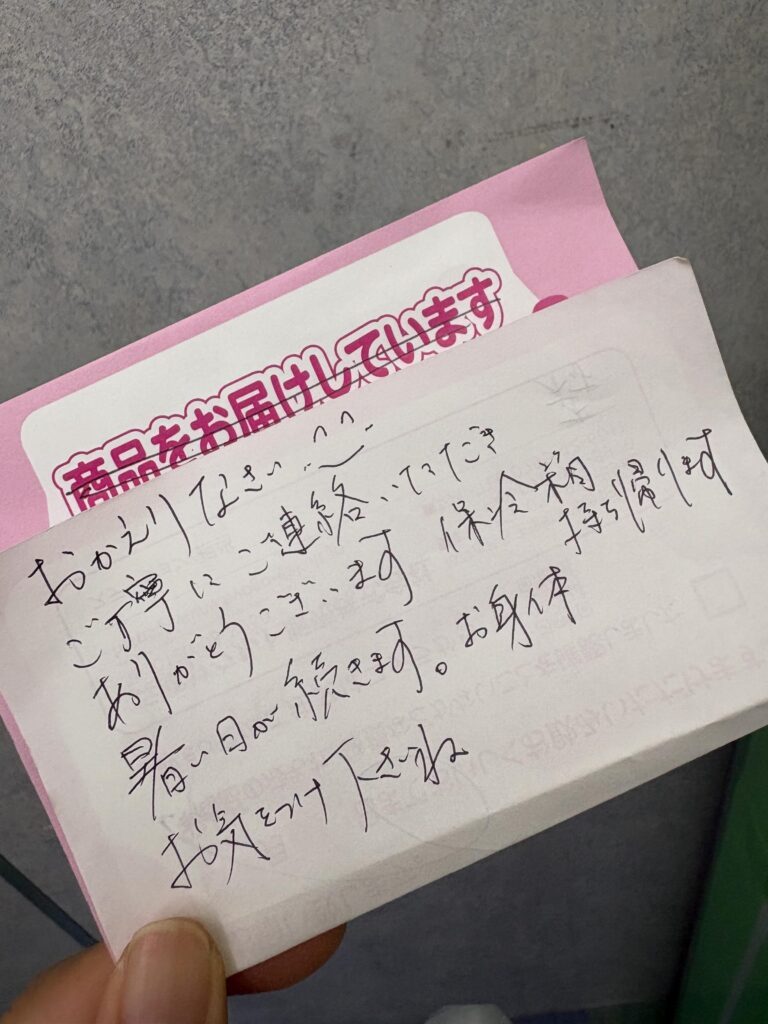 商品をお届けしています
おかえりなさい
ご丁寧にご連絡いただき
ありがとうございます 保冷箱
持ち帰ります
暑い日が続きます。お身体
お気をつけ下さいね